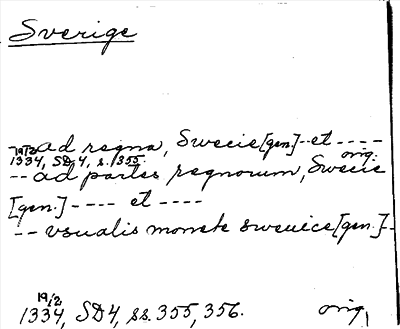 Sverige
-- ad regna, Swecie [gen.] -- et ----
19/2 1334, SD 4, s. 355. orig.
-- ad partes regnorum, Swecie
[gen.] ---- et ----
-- vsualis monete sweuice [gen.] --
19/2
1334, SD 4, ss. 355, 356. orig.